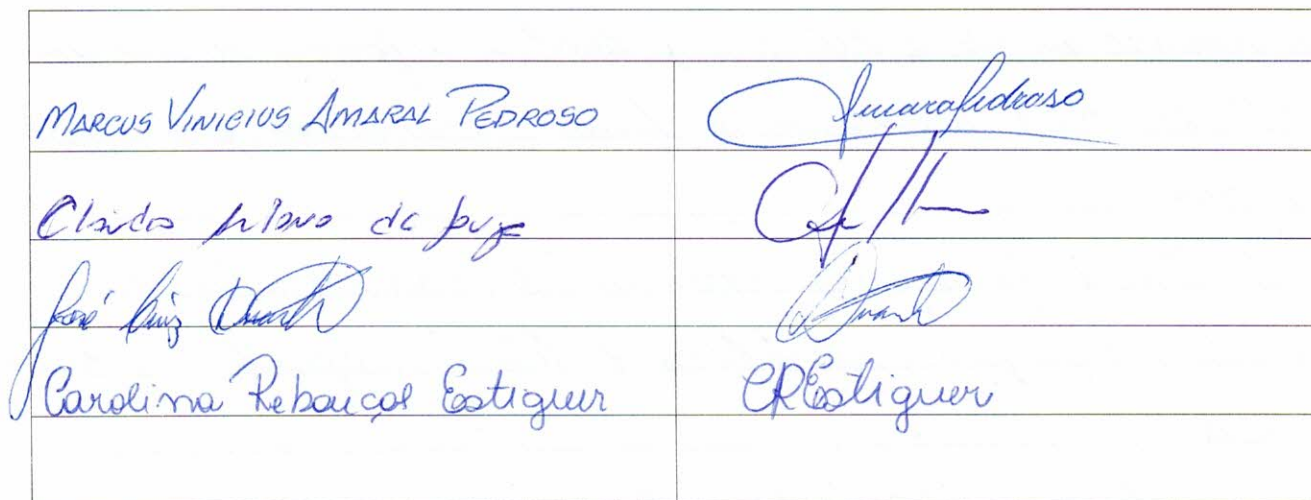 MARCUS VINICIUS AMARAL PEDROSO AmaralPedroso
de
José Luiz Duarte Duarte
Carolina Rebouças Estiguer CREstiguer